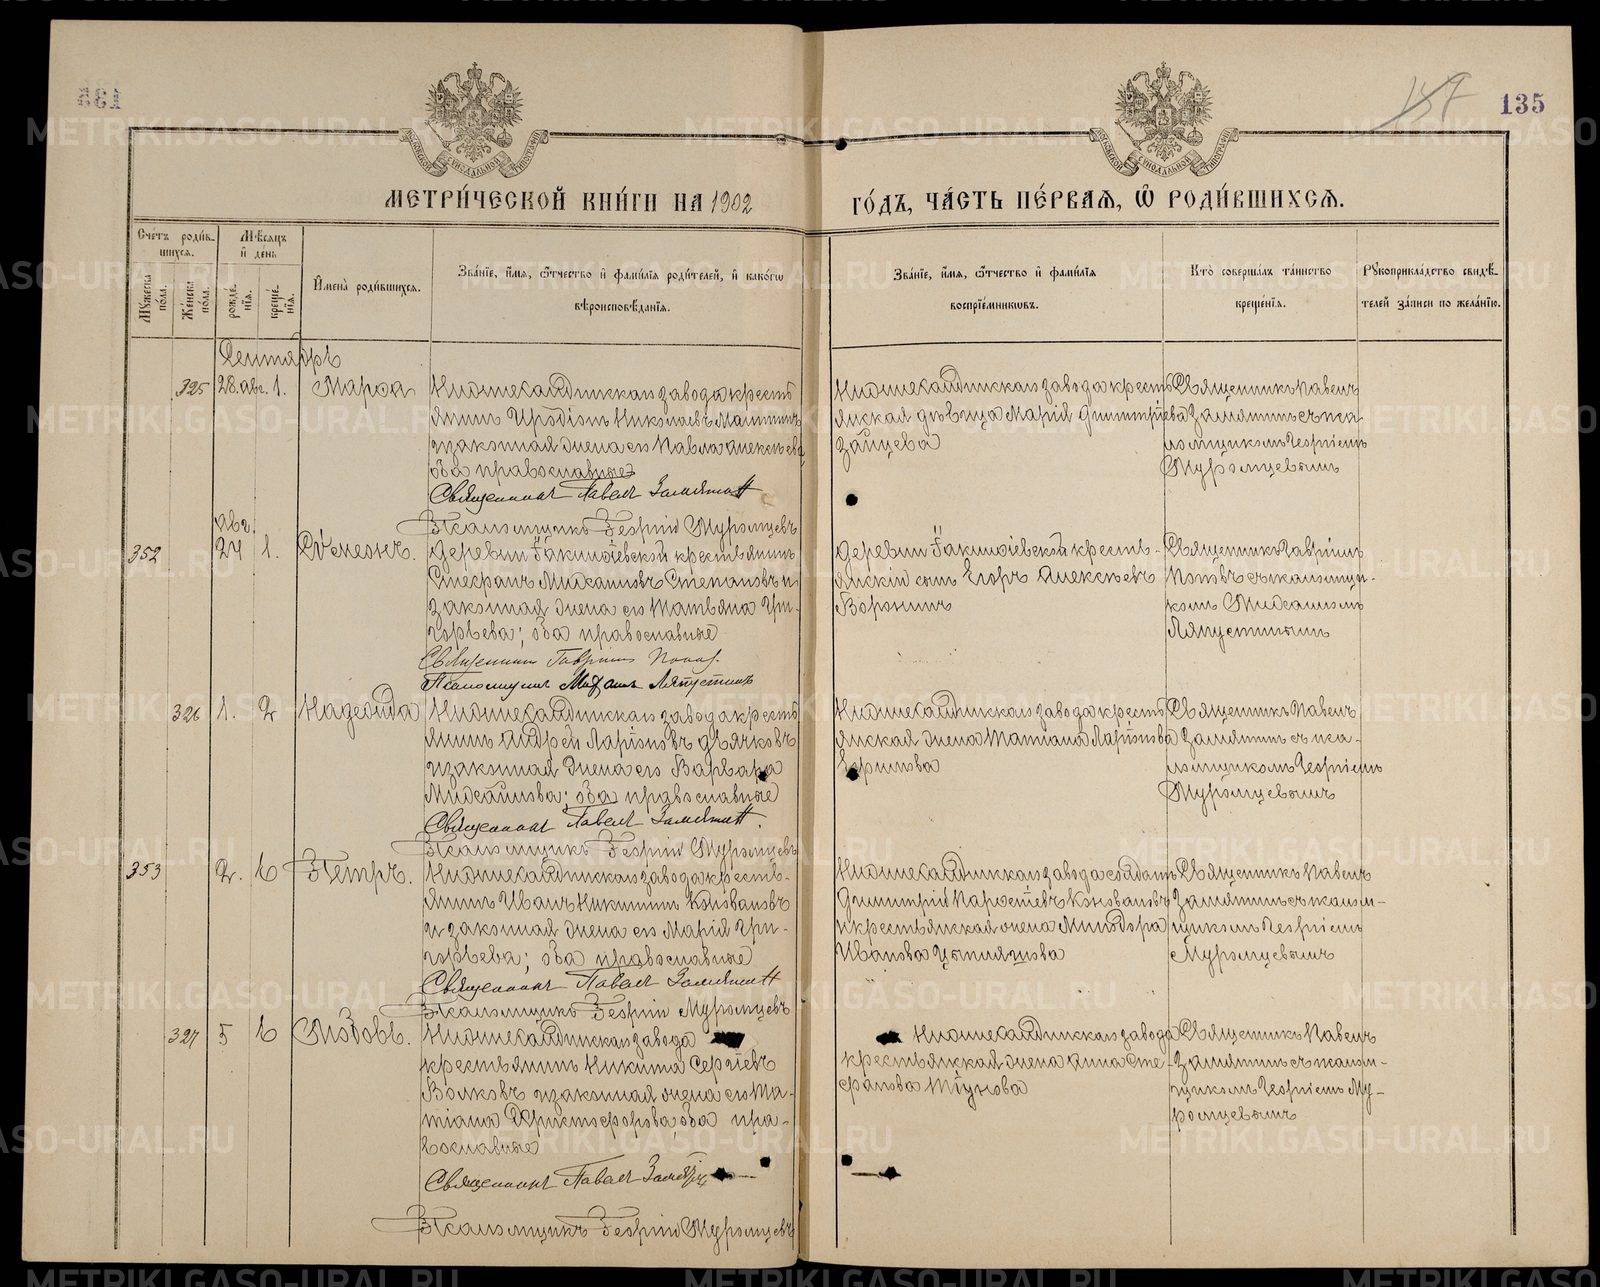 135
МЕТРИ́ЧЕСКОЙ КНИ́ГИ НА 1902 ГО́ДЪ, ЧА́СТЬ ПЕ́РВАЯ, Ѡ РОДИ́ВШИХСЯ.
Счетъ роди́в-
шихся.
Мѣсяцъ
и день
Му́жеска по́ла.
Же́нска по́ла.
рожде́нїя.
креще́нїя.
Имена̀ роди́вшихся.
Зва́нїе, и́мя, ѻ́тчество и фами́лїя роди́телей, и како́гѡ
вѣроисповѣ́данїя.
Зва́нїе, и́мя, ѻ́тчество и фами́лїя
воспрїе́мникѡвъ.
Кто̀ соверша́лъ та́инство
креще́нїя.
Рꙋкоприкла́дство свидѣ́-
телей за́писи по жела́нїю.
Сентябрь
325 28 авг. 1. Марѳа
Нижнесалдинскаго завода кресть
янинъ Иродіонъ Николаевъ
и законная жена его Павла Алексѣева
оба православные
Священникъ Павелъ Замятинъ
Псаломщикъ Георгій Муромцевъ
Нижнесалдинскаго завода кресть
янская дѣвица Марія Димитріева
Зайцева
Священникъ Павелъ
Замятинъ съ пса
ломщикомъ Георгіемъ
Муромцевымъ
352 авг. 24 1. Семенъ.
Деревни Акинѳіевской крестьянинъ
Стефанъ Михаиловъ Степановъ и
законная жена его Татьяна Гри-
горьева; оба православные
Священникъ Гавріилъ Поповъ.
Псаломщикъ Михаилъ Ляпустинъ
Деревни Акинѳіевской кресть-
янскій сынъ Егоръ Алексѣевъ
Воронинъ
Священникъ Гавріилъ
Поповъ съ псаломщи-
комъ Михаиломъ
Ляпустинымъ
326 1. 2 Надежда
Нижнесалдинскаго завода кресть
янинъ Андрей Ларіоновъ Дьячковъ
и законная жена его Варвара
Михайлова; оба православные
Священникъ Павелъ Замятинъ.
Псаломщикъ Георгій Муромцевъ
Нижнесалдинскаго завода кресть
янская жена Татіана Ларіонова
Священникъ Павелъ
Замятинъ съ пса-
ломщикомъ Георгіемъ
Муромцевымъ
353 2. 6 Петръ.
Нижнесалдинскаго завода кресть-
янинъ Иванъ Никитинъ Коноваловъ
и законная жена его Марія Гри-
горьева; оба православные
Священникъ Павелъ Замятинъ
Псаломщикъ Георгій Муромцевъ
Нижнесалдинскаго завода солдатъ
Димитрій Коноваловъ
и крестьянская жена Минодора
Иванова
Священникъ Павелъ
Замятинъ съ псалом-
щикомъ Георгіемъ
Муромцевымъ
327 5 6 Любовь.
Нижнесалдинскаго завода
крестьянинъ Никита Сергіевъ
Волковъ и законная жена его Та-
тіана Христофорова, оба пра-
вославные
Священникъ Павелъ
Псаломщикъ Георгій Муромцевъ
Нижнесалдинскаго завода
крестьянская жена Анна Сте-
фанова
Священникъ Павелъ
Замятинъ съ псалом-
щикомъ Георгіемъ Му-
ромцевымъ
METRIKI.GASO-URAL.RU